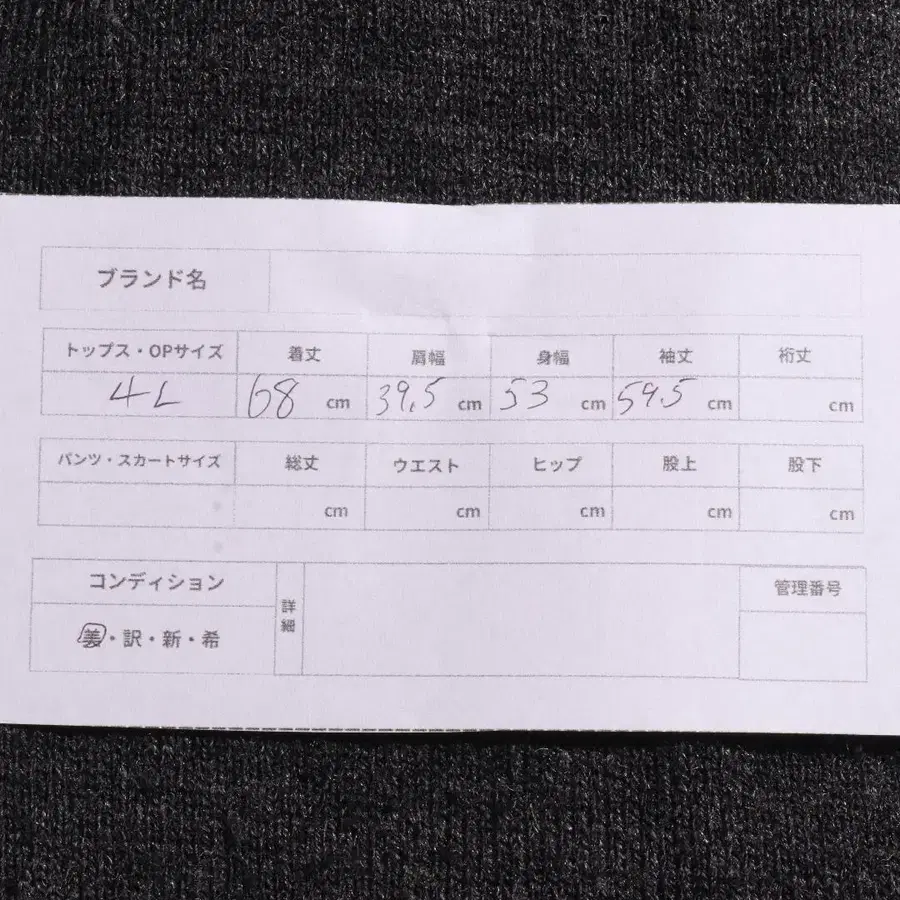 ブランド名
トップス・OPサイズ 着丈 肩幅 身幅 袖丈 裄丈
4L 68 cm 39.5 cm 53 cm 59.5 cm cm
パンツ・スカートサイズ 総丈 ウエスト ヒップ 股上 股下
cm cm cm cm cm
コンディション 詳細 管理番号
美・訳・新・希